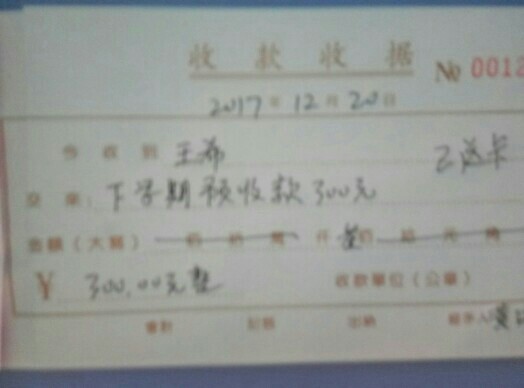 收款收据 No 0012
2017年12月20日
今收到 王希 已送卡
交来：下学期预收款300元
金额（大写） 佰拾万仟叁佰拾元角
¥ 300.00元整 收款单位（公章）
会计 记账 出纳 经手人